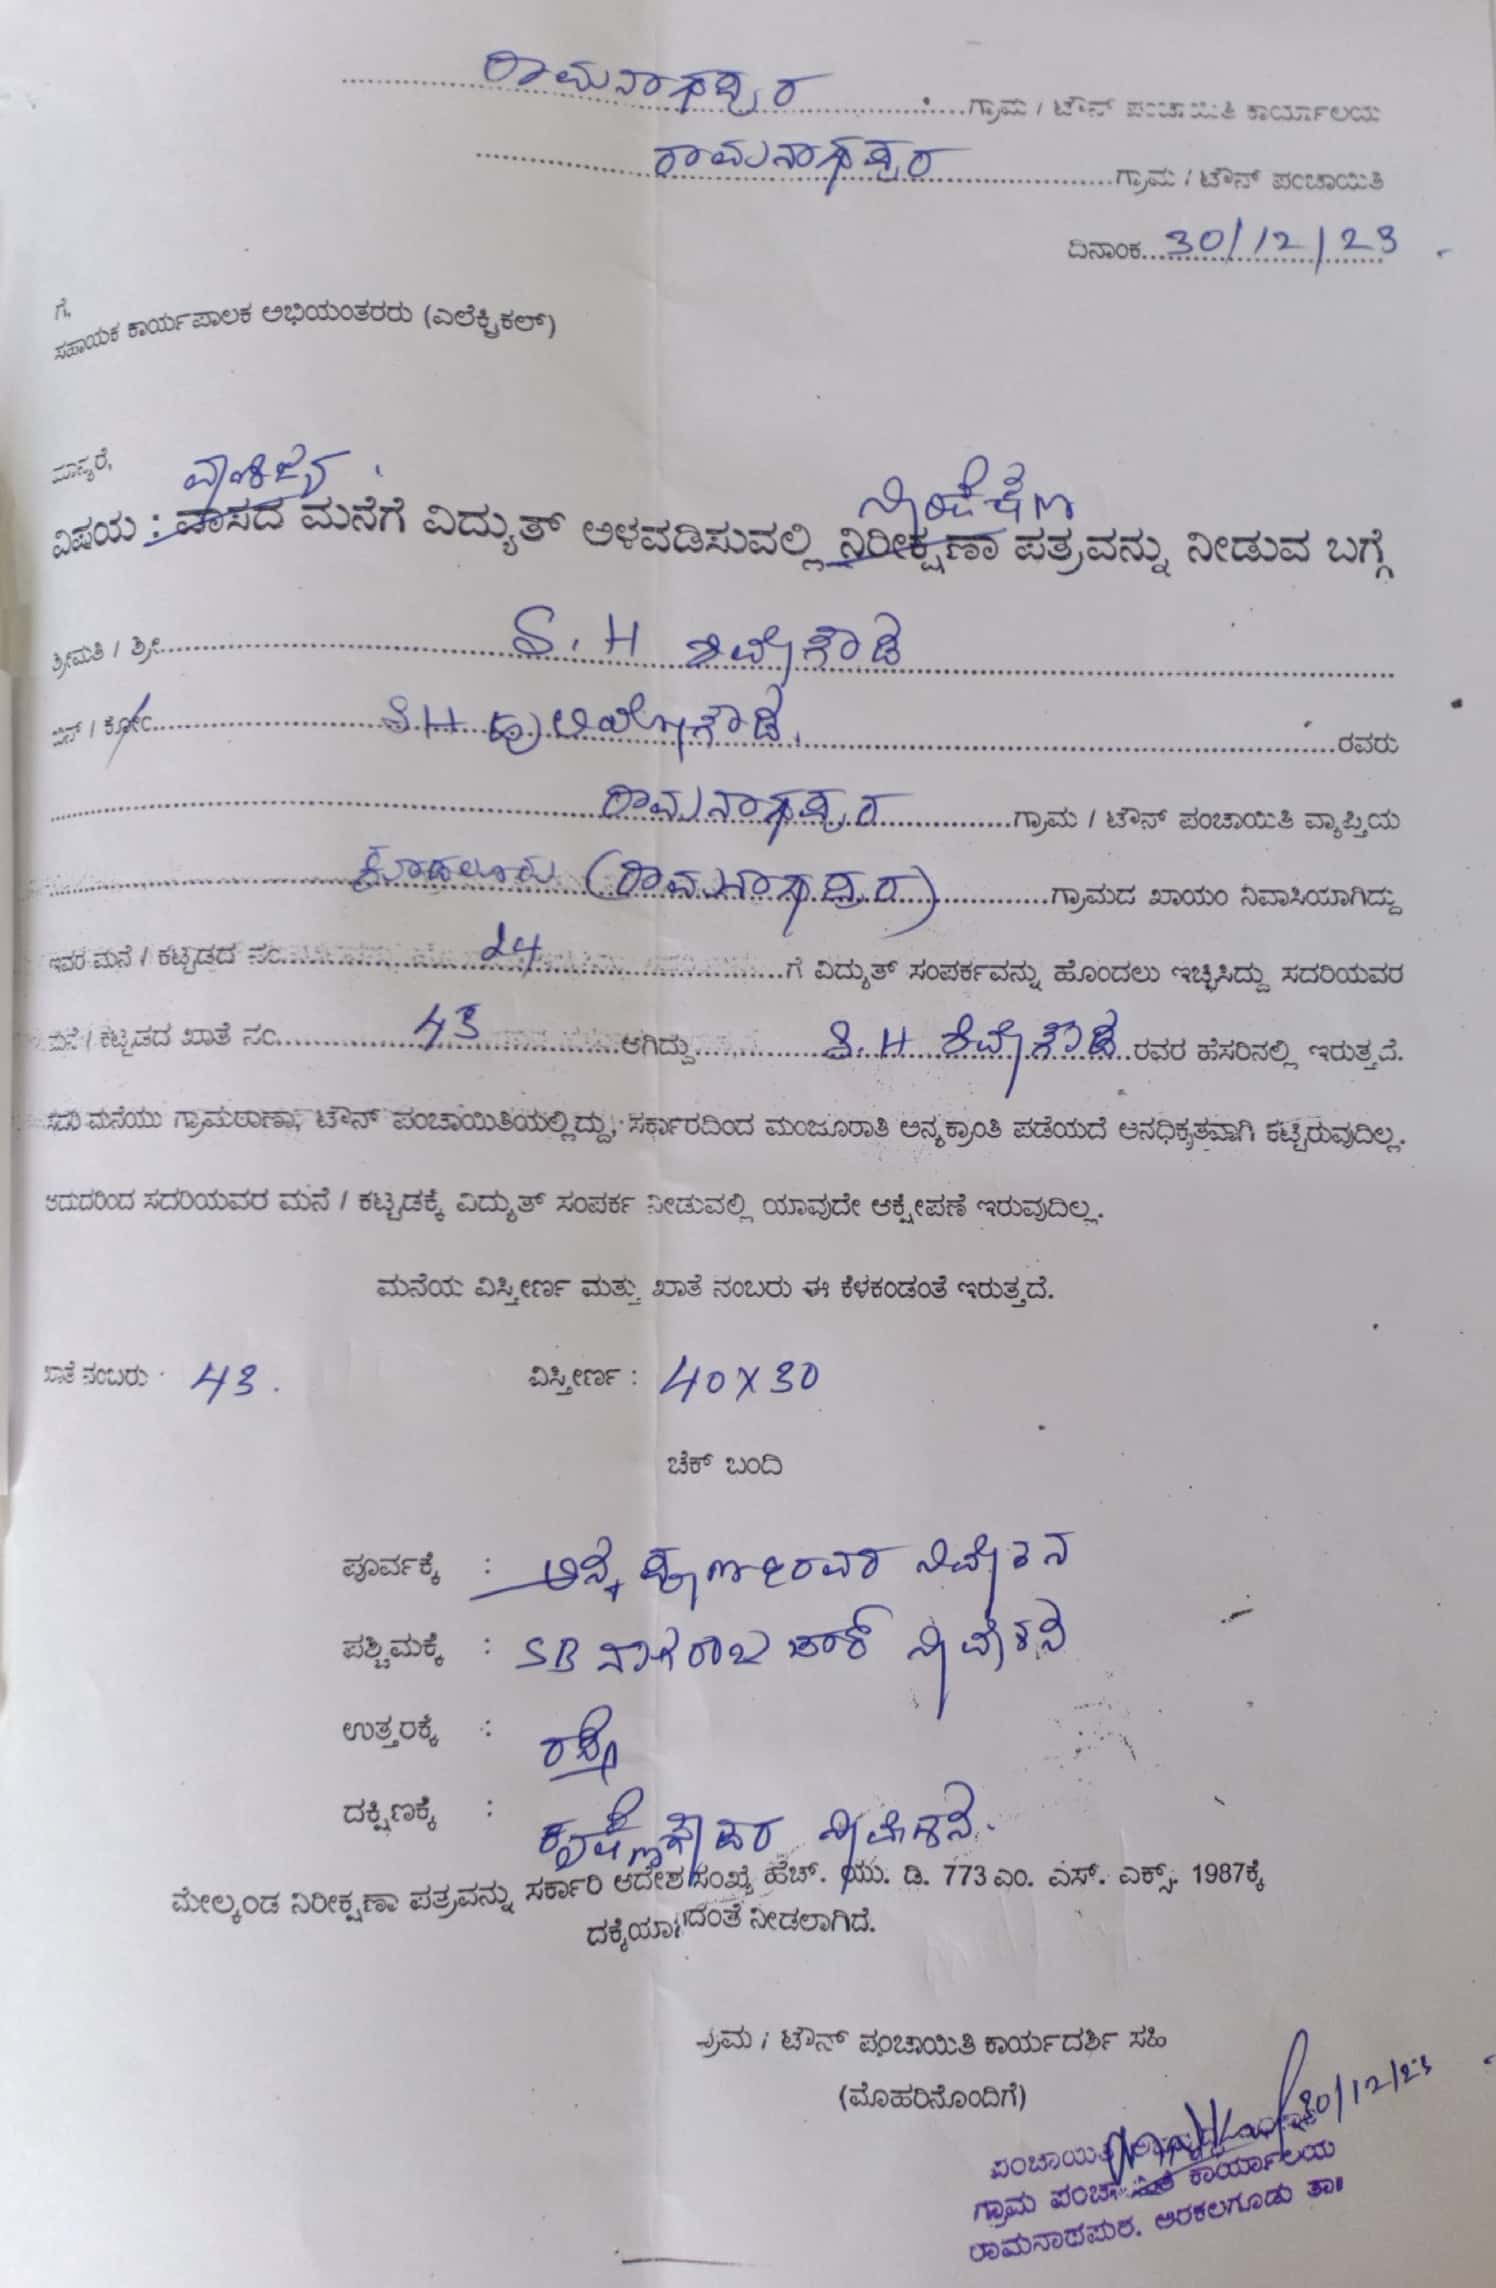 ರಾಮನಾಥಪುರ ಗ್ರಾಮ / ಟೌನ್ ಪಂಚಾಯಿತಿ ಕಾರ್ಯಾಲಯ
ರಾಮನಾಥಪುರ ಗ್ರಾಮ / ಟೌನ್ ಪಂಚಾಯಿತಿ
ದಿನಾಂಕ 30/12/23
ಗೆ,
ಸಹಾಯಕ ಕಾರ್ಯಪಾಲಕ ಅಭಿಯಂತರರು (ಎಲೆಕ್ಟ್ರಿಕಲ್)
ಮಾನ್ಯರೆ,
ವಾಣಿಜ್ಯ
ವಿಷಯ : ವಾಸದ ಮನೆಗೆ ವಿದ್ಯುತ್ ಅಳವಡಿಸುವಲ್ಲಿ ನಿರೀಕ್ಷಣಾ ಪತ್ರವನ್ನು ನೀಡುವ ಬಗ್ಗೆ
ಶ್ರೀಮತಿ / ಶ್ರೀ S.H ಶಿವೇಗೌಡ
ಬಿನ್ / ಕೋಂ S H ಹುಲಿಯೇಗೌಡ, ರವರು
ರಾಮನಾಥಪುರ ಗ್ರಾಮ / ಟೌನ್ ಪಂಚಾಯಿತಿ ವ್ಯಾಪ್ತಿಯ
ಕೂಡಲೂರು (ರಾಮನಾಥಪುರ) ಗ್ರಾಮದ ಖಾಯಂ ನಿವಾಸಿಯಾಗಿದ್ದು
ಇವರ ಮನೆ / ಕಟ್ಟಡದ ನಂ 24 ಗೆ ವಿದ್ಯುತ್ ಸಂಪರ್ಕವನ್ನು ಹೊಂದಲು ಇಚ್ಛಿಸಿದ್ದು ಸದರಿಯವರ
ಮನೆ / ಕಟ್ಟಡದ ಖಾತೆ ನಂ 43 ಆಗಿದ್ದು S.H ಶಿವೇಗೌಡ ರವರ ಹೆಸರಿನಲ್ಲಿ ಇರುತ್ತದೆ.
ಸದರಿ ಮನೆಯು ಗ್ರಾಮಠಾಣಾ, ಟೌನ್ ಪಂಚಾಯಿತಿಯಲ್ಲಿದ್ದು, ಸರ್ಕಾರದಿಂದ ಮಂಜೂರಾತಿ ಅನ್ಯಕ್ರಾಂತಿ ಪಡೆಯದೆ ಅನಧಿಕೃತವಾಗಿ ಕಟ್ಟಿರುವುದಿಲ್ಲ.
ಆದುದರಿಂದ ಸದರಿಯವರ ಮನೆ / ಕಟ್ಟಡಕ್ಕೆ ವಿದ್ಯುತ್ ಸಂಪರ್ಕ ನೀಡುವಲ್ಲಿ ಯಾವುದೇ ಆಕ್ಷೇಪಣೆ ಇರುವುದಿಲ್ಲ.
ಮನೆಯ ವಿಸ್ತೀರ್ಣ ಮತ್ತು ಖಾತೆ ನಂಬರು ಈ ಕೆಳಕಂಡಂತೆ ಇರುತ್ತದೆ.
ಖಾತೆ ನಂಬರು 43. ವಿಸ್ತೀರ್ಣ : 40X30
ಚೆಕ್ ಬಂದಿ
ಪೂರ್ವಕ್ಕೆ : ನಿವೇಶನ
ಪಶ್ಚಿಮಕ್ಕೆ : SB ನಾಗರಾಜ ನಿವೇಶನ
ಉತ್ತರಕ್ಕೆ : ರಸ್ತೆ
ದಕ್ಷಿಣಕ್ಕೆ : ಕೃಷ್ಣೇಗೌಡರ ನಿವೇಶನ.
ಮೇಲ್ಕಂಡ ನಿರೀಕ್ಷಣಾ ಪತ್ರವನ್ನು ಸರ್ಕಾರಿ ಆದೇಶ ಸಂಖ್ಯೆ ಹೆಚ್. ಯು. ಡಿ. 773 ಎಂ. ಎಸ್. ಎಕ್ಸ್. 1987ಕ್ಕೆ
ನೀಡಲಾಗಿದೆ.
ಗ್ರಾಮ / ಟೌನ್ ಪಂಚಾಯಿತಿ ಕಾರ್ಯದರ್ಶಿ ಸಹಿ
(ಮೊಹರಿನೊಂದಿಗೆ)
30/12/23
ಪಂಚಾಯಿತಿ
ಗ್ರಾಮ ಪಂಚಾಯಿತಿ ಕಾರ್ಯಾಲಯ
ರಾಮನಾಥಪುರ. ಅರಕಲಗೂಡು ತಾ॥